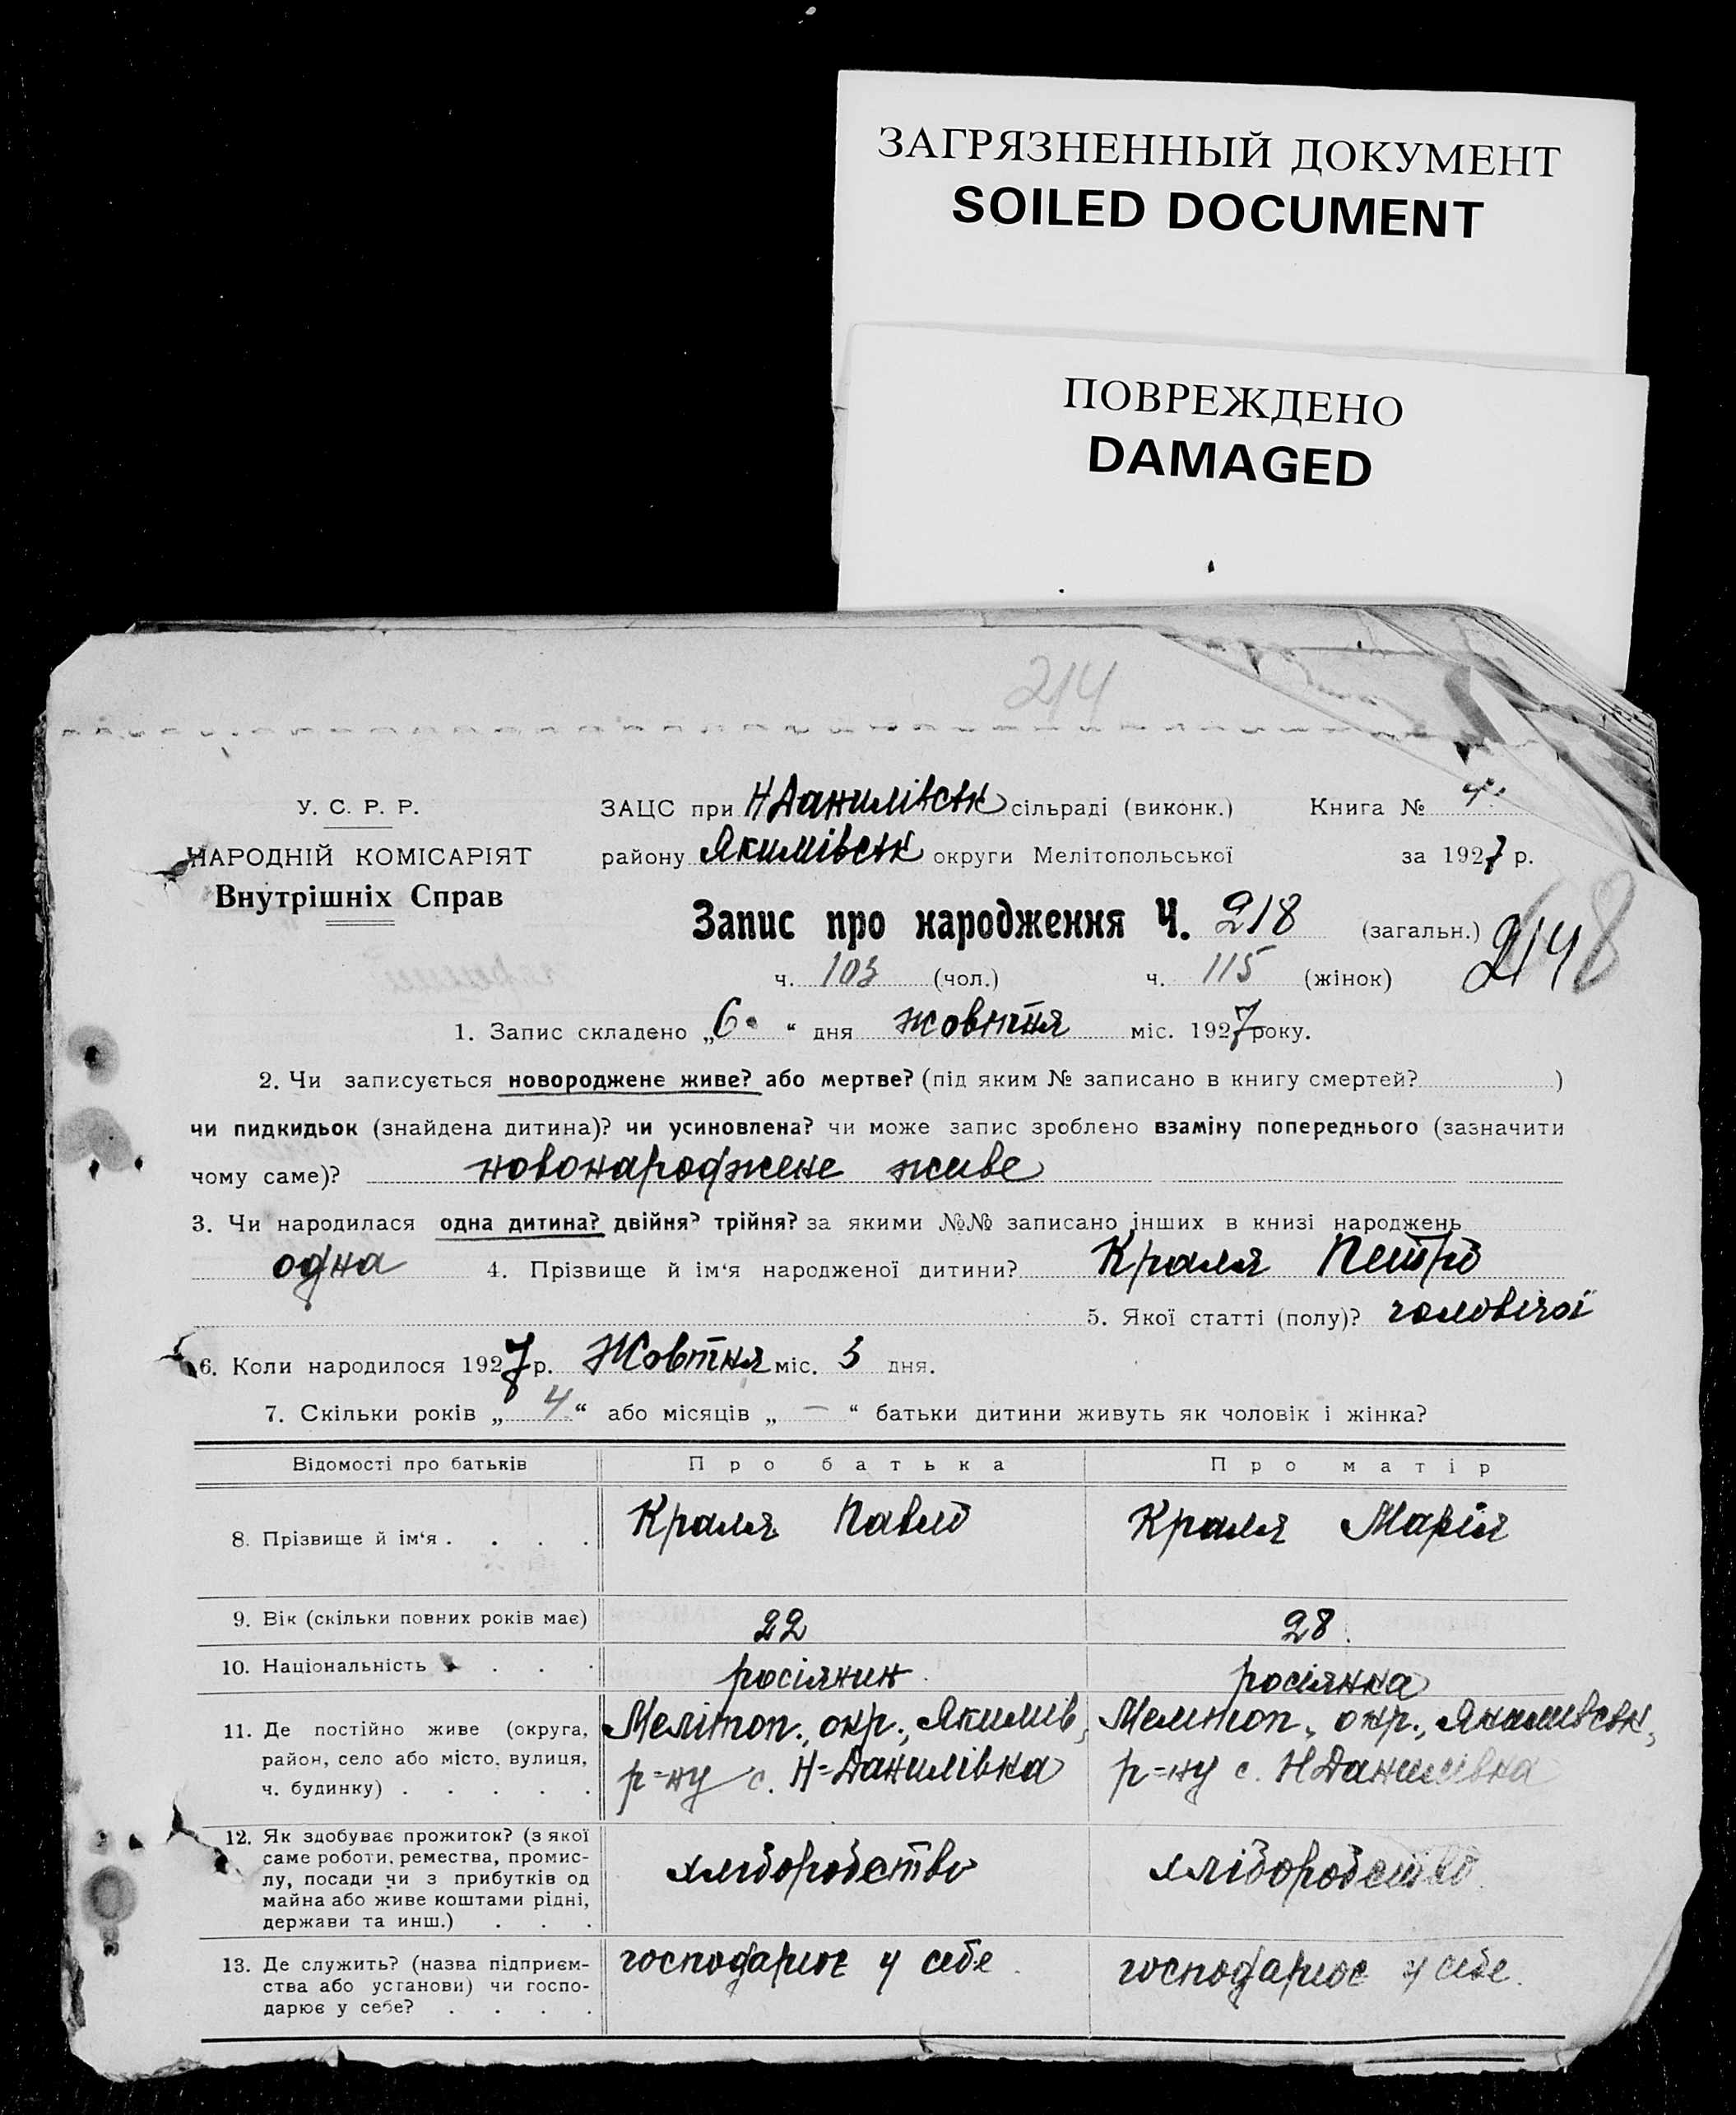 ЗАГРЯЗНЕННЫЙ ДОКУМЕНТ
SOILED DOCUMENT
ПОВРЕЖДЕНО
DAMAGED
214
У. С. Р. Р.
НАРОДНІЙ КОМІСАРІЯТ
Внутрішніх Справ
ЗАЦС при Н Данилівськ сільраді (виконк.) Книга № 4
району Якимівськ округи Мелітопольської за 1927 р.
Запис про народження Ч. 218 (загальн.) 214 8
ч. 103 (чол.) ч. 115 (жінок)
1. Запис складено „6“ дня жовтня міс. 1927 року.
2. Чи записується новороджене живе? або мертве? (під яким № записано в книгу смертей? )
чи пидкидьок (знайдена дитина)? чи усиновлена? чи може запис зроблено взаміну попереднього (зазначити
чому саме)? новонароджене живе
3. Чи народилася одна дитина? двійня? трійня? за якими №№ записано інших в книзі народжень
одна 4. Прізвище й ім‘я народженої дитини? Краля Петро
5. Якої статті (полу)? чоловічої
6. Коли народилося 1927 р. Жовтня міс. 3 дня.
7. Скільки років „ 4 “ або місяців „ — “ батьки дитини живуть як чоловік і жінка?
Відомості про батьків Про батька Про матір
8. Прізвище й ім‘я . . . . Краля Павло Краля Марія
9. Вік (скільки повних років має) 22 28.
10. Національність . . . росіянин росіянка
11. Де постійно живе (округа, район, село або місто, вулиця, ч. будинку) . . . . . Мелітоп., окр., Якимів, р=ну с. Н=Данилівка Мелитоп., окр., Якимівськ, р=ну с. Н Данилівка
12. Як здобуває прожиток? (з якої саме роботи, ремества, промислу, посади чи з прибутків од майна або живе коштами рідні, держави та инш.) . . . хліборобство хліборобство
13. Де служить? (назва підприємства або установи) чи господарює у себе? . . . . господарює у себе. господарює у себе.